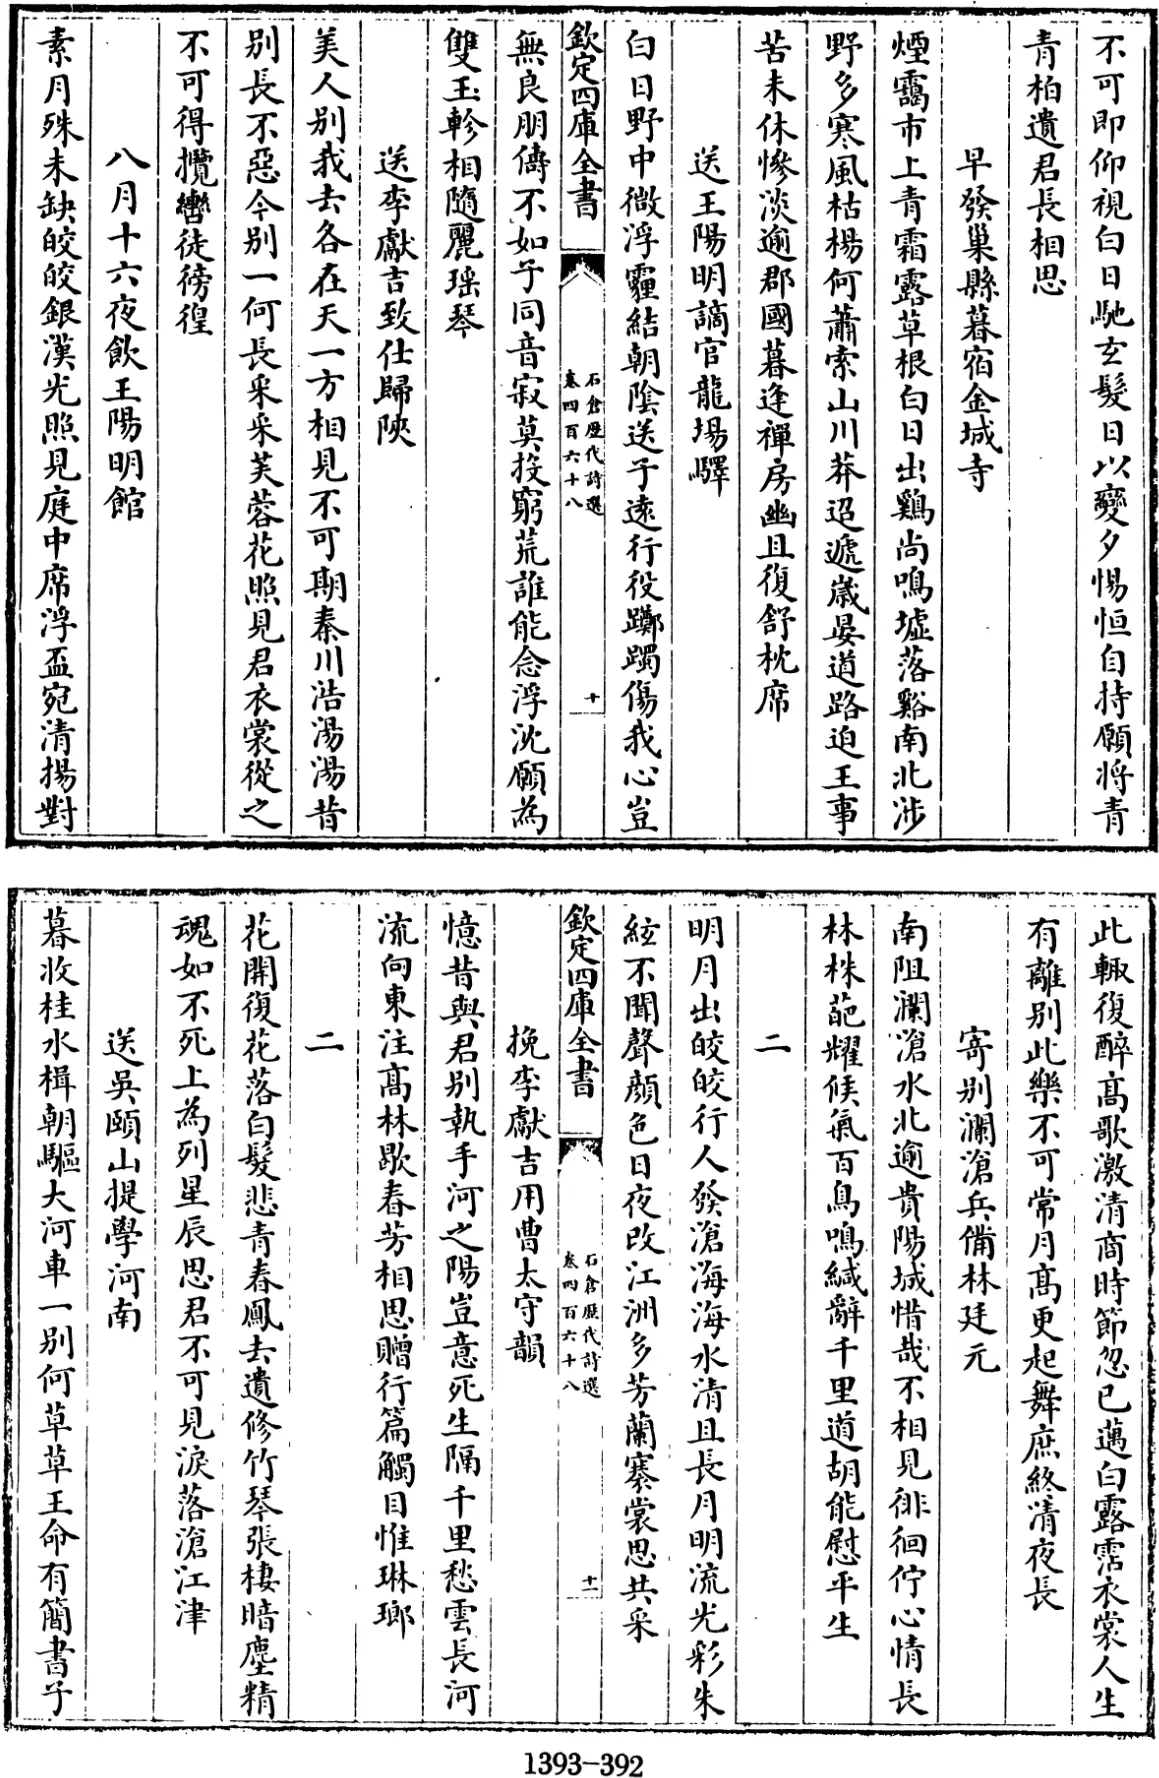 不可即仰視白日馳玄髮日以變夕惕恒自持願將青
青柏遺君長相思
早發巢縣暮宿金城寺
煙靄市上青霜露草根白日出鷄尚鳴墟落谿南北涉
野多寒風枯楊何蕭索山川莽迢遞歲晏道路迫王事
苦未休慘淡逾郡國暮逢禪房幽且復舒枕席
送王陽明謫官龍場驛
白日野中微浮霾結朝陰送子遠行役躑躅傷我心豈
欽定四庫全書
石倉歷代詩選
卷四百六十八
十
無良朋儔不如子同音寂莫投窮荒誰能念浮沈願為
雙玉軫相隨麗瑶琴
送李獻吉致仕歸陝
美人別我去各在天一方相見不可期秦川浩湯湯昔
別長不惡今別一何長采采芙蓉花照見君衣裳從之
不可得攬轡徒徬徨
八月十六夜飲王陽明館
素月殊未缺皎皎銀漢光照見庭中席浮盃宛清揚對
此輙復醉高歌激清商時節忽已邁白露霑衣裳人生
有離別此樂不可常月高更起舞庶終清夜長
寄別瀾滄兵備林廷元
南阻瀾滄水北逾貴陽城惜哉不相見徘徊佇心情長
林株葩耀候氣百鳥鳴緘辭千里道胡能慰平生
二
明月出皎皎行人發滄海海水清且長月明流光彩朱
絃不聞聲顏色日夜改江洲多芳蘭褰裳思共采
欽定四庫全書
石倉歷代詩選
卷四百六十八
十一
挽李獻吉用曹太守韻
憶昔與君別執手河之陽豈意死生隔千里愁雲長河
流向東注高林歇春芳相思贈行篇觸目惟琳瑯
二
花開復花落白髮悲青春鳳去遺修竹琴張棲暗塵精
魂如不死上為列星辰思君不可見淚落滄江津
送吳頤山提學河南
暮收桂水楫朝驅大河車一別何草草王命有簡書子
1393-392